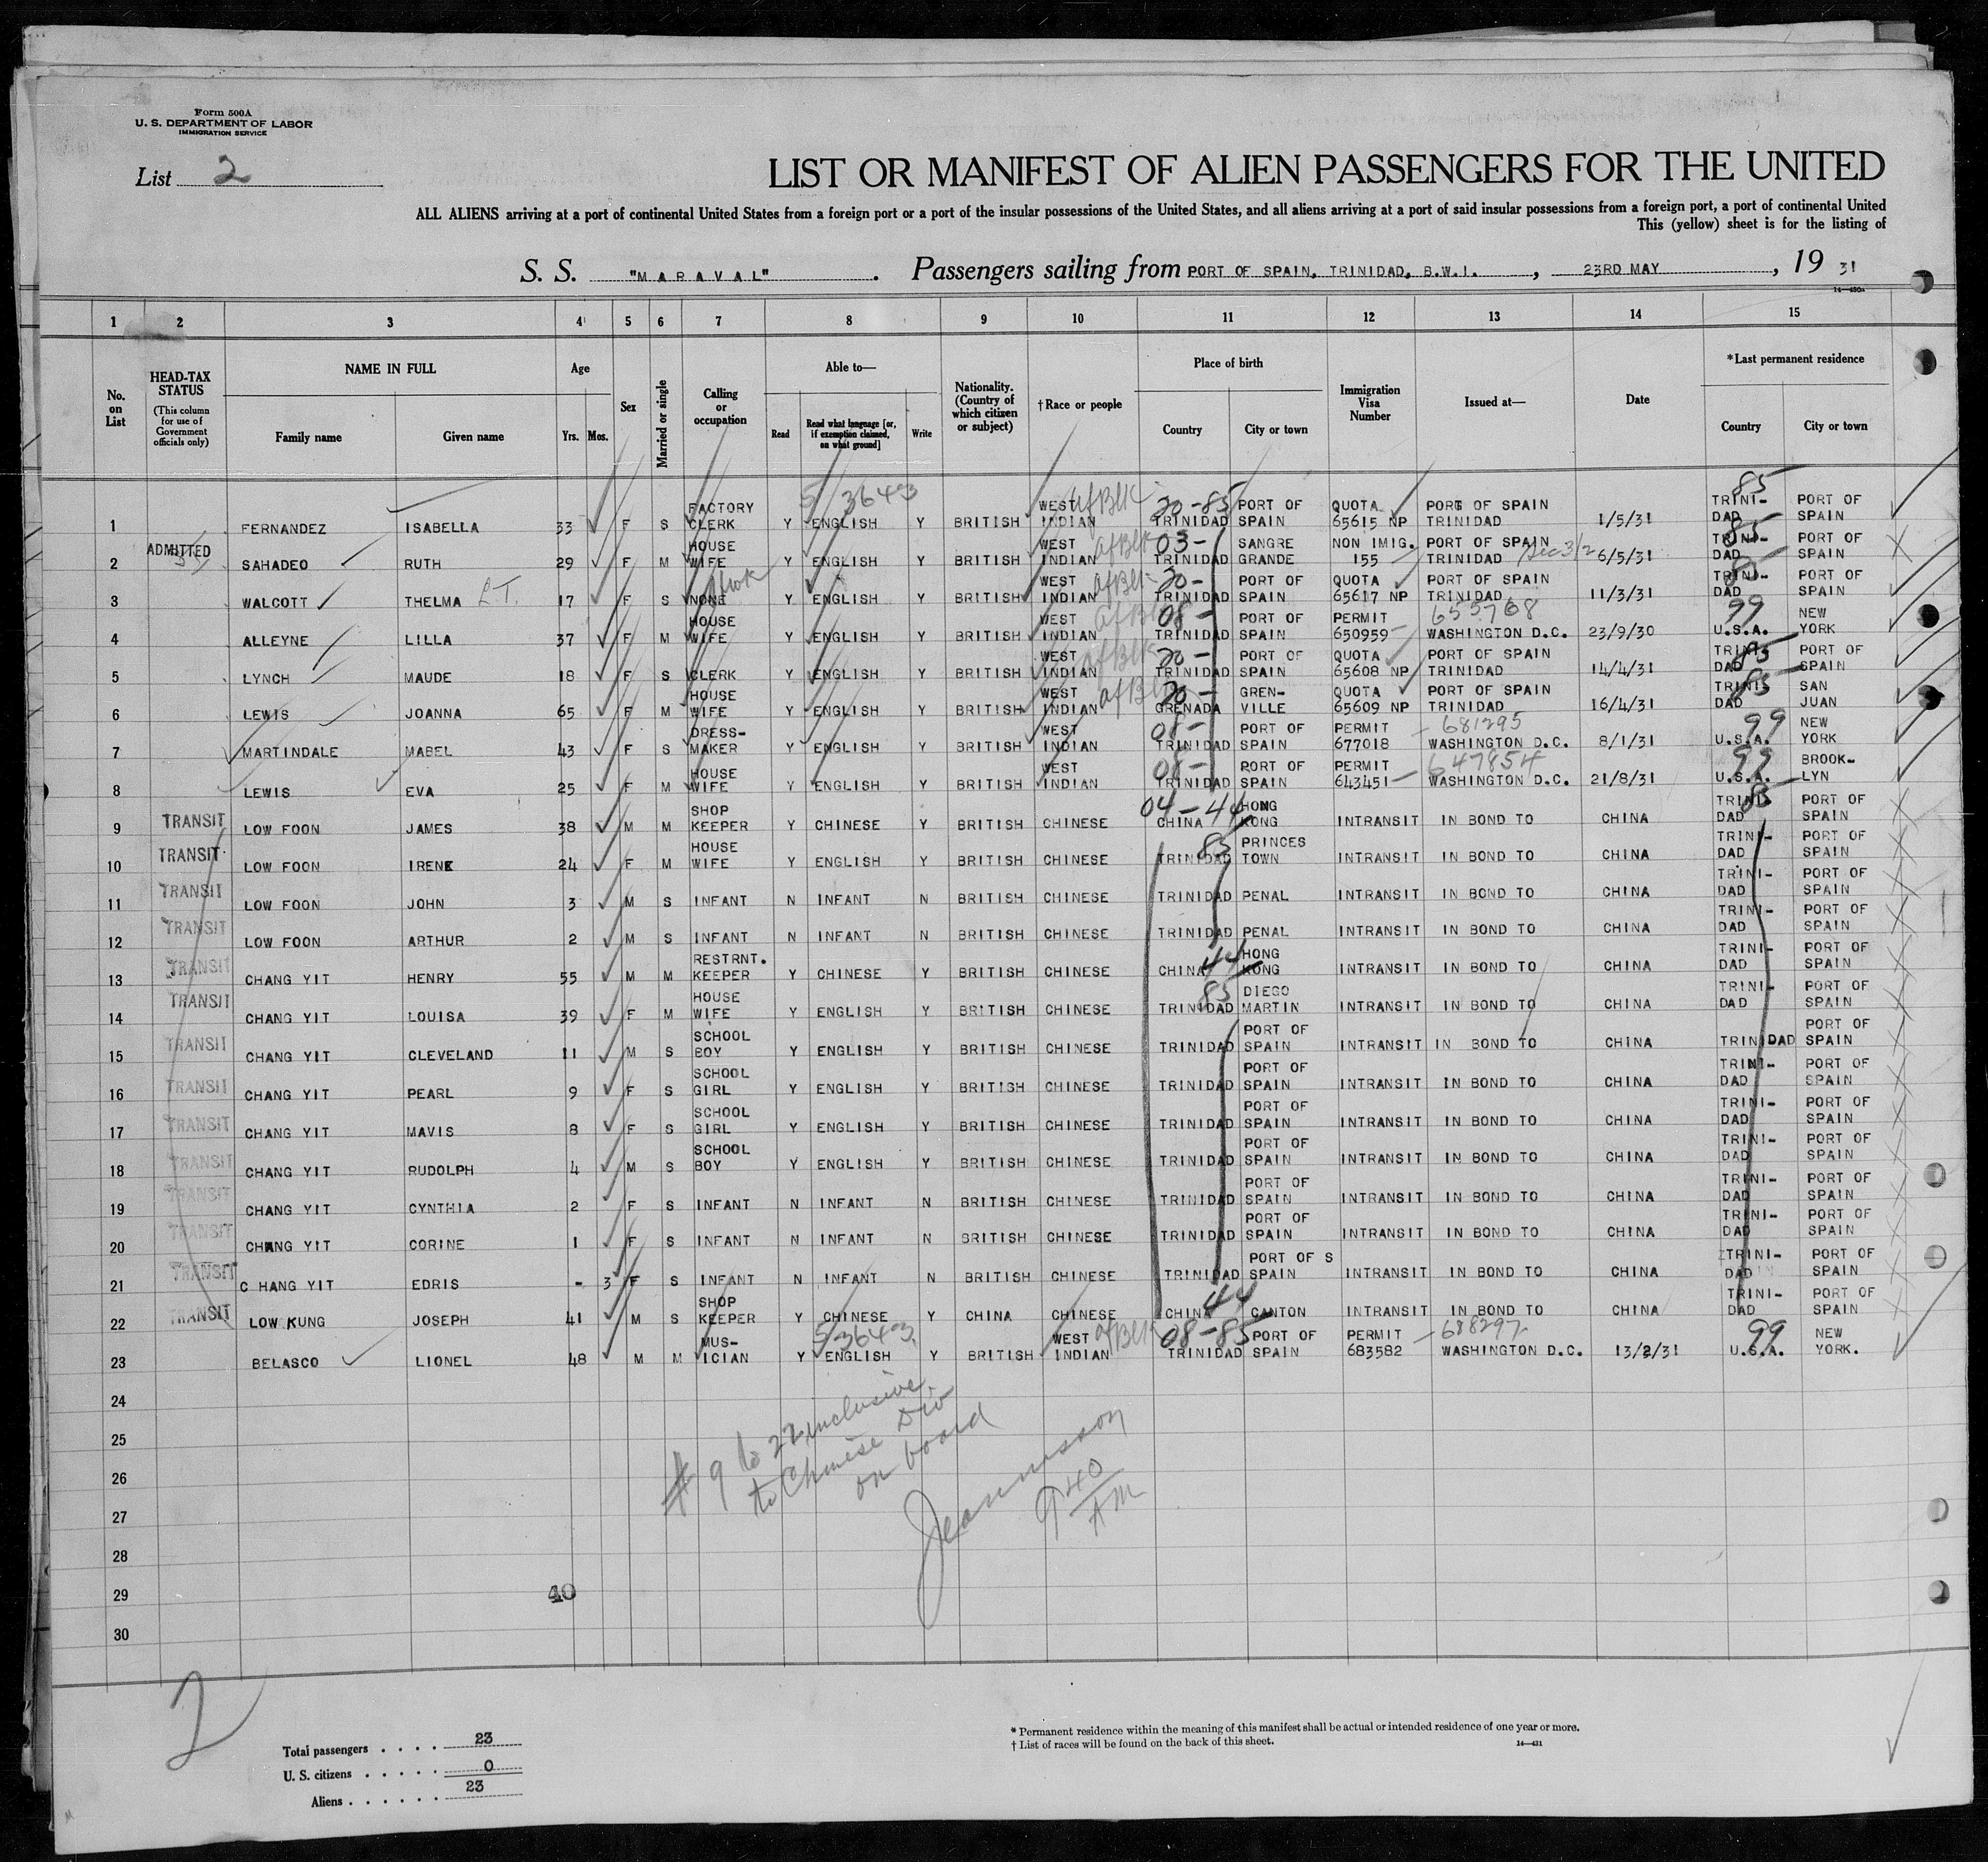 Form 500A
U. S. DEPARTMENT OF LABOR
IMMIGRATION SERVICE
List 2
LIST OR MANIFEST OF ALIEN PASSENGERS FOR THE UNITED
ALL ALIENS arriving at a port of continental United States from a foreign port or a port of the insular possessions of the United States, and all aliens arriving at a port of said insular possessions from a foreign port, a port of continental United
This (yellow) sheet is for the listing of
S. S. "MARAVAL". Passengers sailing from PORT OF SPAIN, TRINIDAD, B.W.I., 23RD MAY, 19 31
1 2 3 4 5 6 7 8 9 10 11 12 13 14 15
No. on List
HEAD-TAX STATUS (This column for use of Government officials only)
NAME IN FULL
Family name Given name
Age
Yrs. Mos.
Sex
Married or single
Calling or occupation
Able to—
Read Read what language [or, if exemption claimed, on what ground] Write
Nationality. (Country of which citizen or subject)
† Race or people
Place of birth
Country City or town
Immigration Visa Number
Issued at—
Date
* Last permanent residence
Country City or town
1 FERNANDEZ ISABELLA 33 F S FACTORY CLERK Y ENGLISH 5/3643 Y BRITISH WEST INDIAN AfBlk 20-85 TRINIDAD PORT OF SPAIN QUOTA 65615 NP PORT OF SPAIN TRINIDAD 1/5/31 85 TRINI-DAD PORT OF SPAIN
2 ADMITTED SAHADEO RUTH 29 F M HOUSE WIFE Y ENGLISH Y BRITISH WEST INDIAN AfBlk 03- TRINIDAD SANGRE GRANDE NON IMIG. 155 PORT OF SPAIN TRINIDAD Sec 3/2 6/5/31 85 TRINI-DAD PORT OF SPAIN
3 WALCOTT THELMA L.T. 17 F S NONE Y ENGLISH Y BRITISH WEST INDIAN AfBlk 20- TRINIDAD PORT OF SPAIN QUOTA 65617 NP PORT OF SPAIN TRINIDAD 11/3/31 85 TRINI-DAD PORT OF SPAIN
4 ALLEYNE LILLA 37 F M HOUSE WIFE Y ENGLISH Y BRITISH WEST INDIAN AfBlk 08- TRINIDAD PORT OF SPAIN PERMIT 650959 655768 WASHINGTON D.C. 23/9/30 99 U.S.A. NEW YORK
5 LYNCH MAUDE 18 F S CLERK Y ENGLISH Y BRITISH WEST INDIAN AfBlk 20- TRINIDAD PORT OF SPAIN QUOTA 65608 NP PORT OF SPAIN TRINIDAD 14/4/31 85 TRINI-DAD PORT OF SPAIN
6 LEWIS JOANNA 65 F M HOUSE WIFE Y ENGLISH Y BRITISH WEST INDIAN AfBlk 20- GRENADA GREN-VILLE QUOTA 65609 NP PORT OF SPAIN TRINIDAD 16/4/31 85 TRINI-DAD SAN JUAN
7 MARTINDALE MABEL 43 F S DRESS-MAKER Y ENGLISH Y BRITISH WEST INDIAN 08- TRINIDAD PORT OF SPAIN PERMIT 677018 681295 WASHINGTON D.C. 8/1/31 99 U.S.A. NEW YORK
8 LEWIS EVA 25 F M HOUSE WIFE Y ENGLISH Y BRITISH WEST INDIAN 08- TRINIDAD PORT OF SPAIN PERMIT 643451 647854 WASHINGTON D.C. 21/8/31 99 U.S.A. BROOK-LYN
9 TRANSIT LOW FOON JAMES 38 M M SHOP KEEPER Y CHINESE Y BRITISH CHINESE 04-44 CHINA HONG KONG INTRANSIT IN BOND TO CHINA 85 TRINI-DAD PORT OF SPAIN
10 TRANSIT LOW FOON IRENE 24 F M HOUSE WIFE Y ENGLISH Y BRITISH CHINESE 85 TRINIDAD PRINCES TOWN INTRANSIT IN BOND TO CHINA TRINI-DAD PORT OF SPAIN
11 TRANSIT LOW FOON JOHN 3 M S INFANT N INFANT N BRITISH CHINESE TRINIDAD PENAL INTRANSIT IN BOND TO CHINA TRINI-DAD PORT OF SPAIN
12 TRANSIT LOW FOON ARTHUR 2 M S INFANT N INFANT N BRITISH CHINESE TRINIDAD PENAL INTRANSIT IN BOND TO CHINA TRINI-DAD PORT OF SPAIN
13 TRANSIT CHANG YIT HENRY 55 M M RESTRNT. KEEPER Y CHINESE Y BRITISH CHINESE 44 CHINA HONG KONG INTRANSIT IN BOND TO CHINA TRINI-DAD PORT OF SPAIN
14 TRANSIT CHANG YIT LOUISA 39 F M HOUSE WIFE Y ENGLISH Y BRITISH CHINESE 85 TRINIDAD DIEGO MARTIN INTRANSIT IN BOND TO CHINA TRINI-DAD PORT OF SPAIN
15 TRANSIT CHANG YIT CLEVELAND 11 M S SCHOOL BOY Y ENGLISH Y BRITISH CHINESE TRINIDAD PORT OF SPAIN INTRANSIT IN BOND TO CHINA TRINIDAD PORT OF SPAIN
16 TRANSIT CHANG YIT PEARL 9 F S SCHOOL GIRL Y ENGLISH Y BRITISH CHINESE TRINIDAD PORT OF SPAIN INTRANSIT IN BOND TO CHINA TRINI-DAD PORT OF SPAIN
17 TRANSIT CHANG YIT MAVIS 8 F S SCHOOL GIRL Y ENGLISH Y BRITISH CHINESE TRINIDAD PORT OF SPAIN INTRANSIT IN BOND TO CHINA TRINI-DAD PORT OF SPAIN
18 TRANSIT CHANG YIT RUDOLPH 4 M S SCHOOL BOY Y ENGLISH Y BRITISH CHINESE TRINIDAD PORT OF SPAIN INTRANSIT IN BOND TO CHINA TRINI-DAD PORT OF SPAIN
19 TRANSIT CHANG YIT CYNTHIA 2 F S INFANT N INFANT N BRITISH CHINESE TRINIDAD PORT OF SPAIN INTRANSIT IN BOND TO CHINA TRINI-DAD PORT OF SPAIN
20 TRANSIT CHANG YIT CORINE 1 F S INFANT N INFANT N BRITISH CHINESE TRINIDAD PORT OF SPAIN INTRANSIT IN BOND TO CHINA TRINI-DAD PORT OF SPAIN
21 TRANSIT C HANG YIT EDRIS - 3 F S INFANT N INFANT N BRITISH CHINESE TRINIDAD PORT OF S SPAIN INTRANSIT IN BOND TO CHINA TRINI-DAD PORT OF SPAIN
22 TRANSIT LOW KUNG JOSEPH 41 M S SHOP KEEPER Y CHINESE Y CHINA CHINESE 44 CHINA CANTON INTRANSIT IN BOND TO CHINA TRINI-DAD PORT OF SPAIN
23 BELASCO LIONEL 48 M M MUS-ICIAN Y ENGLISH 5-3643 Y BRITISH WEST INDIAN AfBlk 08-85 TRINIDAD PORT OF SPAIN PERMIT 683582 688297 WASHINGTON D.C. 13/2/31 99 U.S.A. NEW YORK.
24
25
26
27
28
29 40
30
# 9 to 22 inclusive
to Chinese Div
on board
9 40 AM
2
Total passengers . . . . 23
U. S. citizens . . . . . 0
Aliens . . . . . . 23
* Permanent residence within the meaning of this manifest shall be actual or intended residence of one year or more.
† List of races will be found on the back of this sheet.
14—431